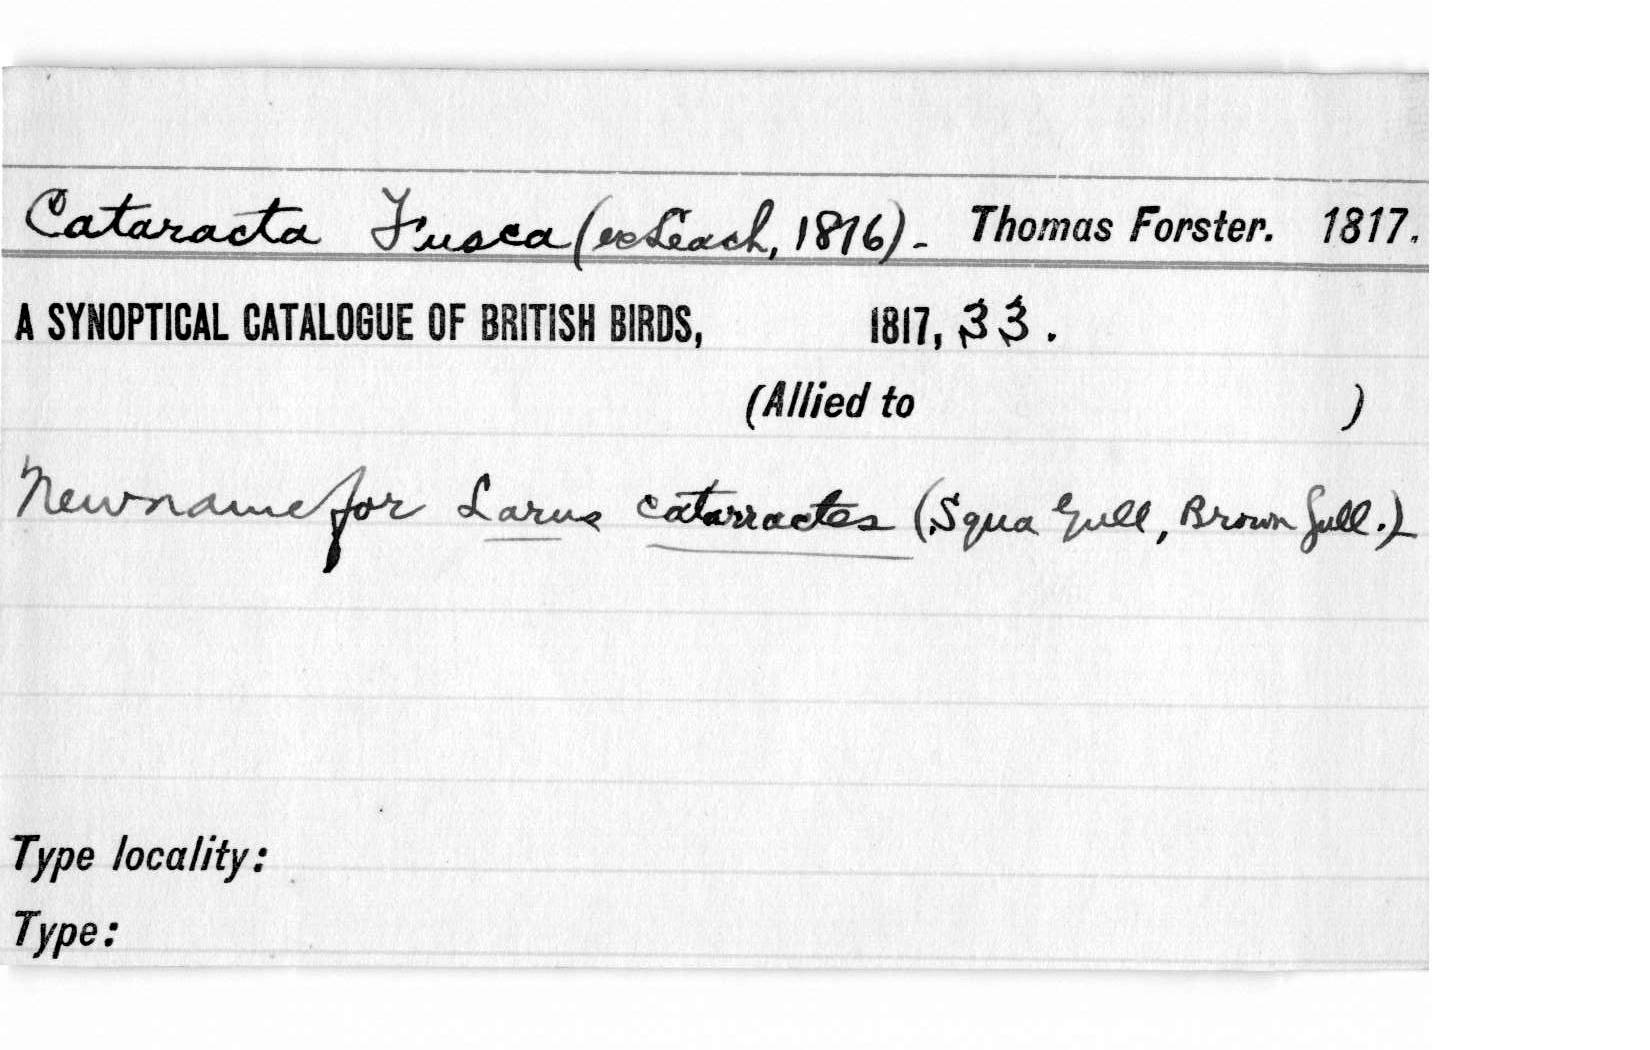 Cataracta Fusca (ex Leach, 1816) - Thomas Forster. 1817.
A SYNOPTICAL CATALOGUE OF BRITISH BIRDS, 1817, 33.
(Allied to )
New name for Larus catarractes (Squa Gull, Brown Gull.)
Type locality:
Type: